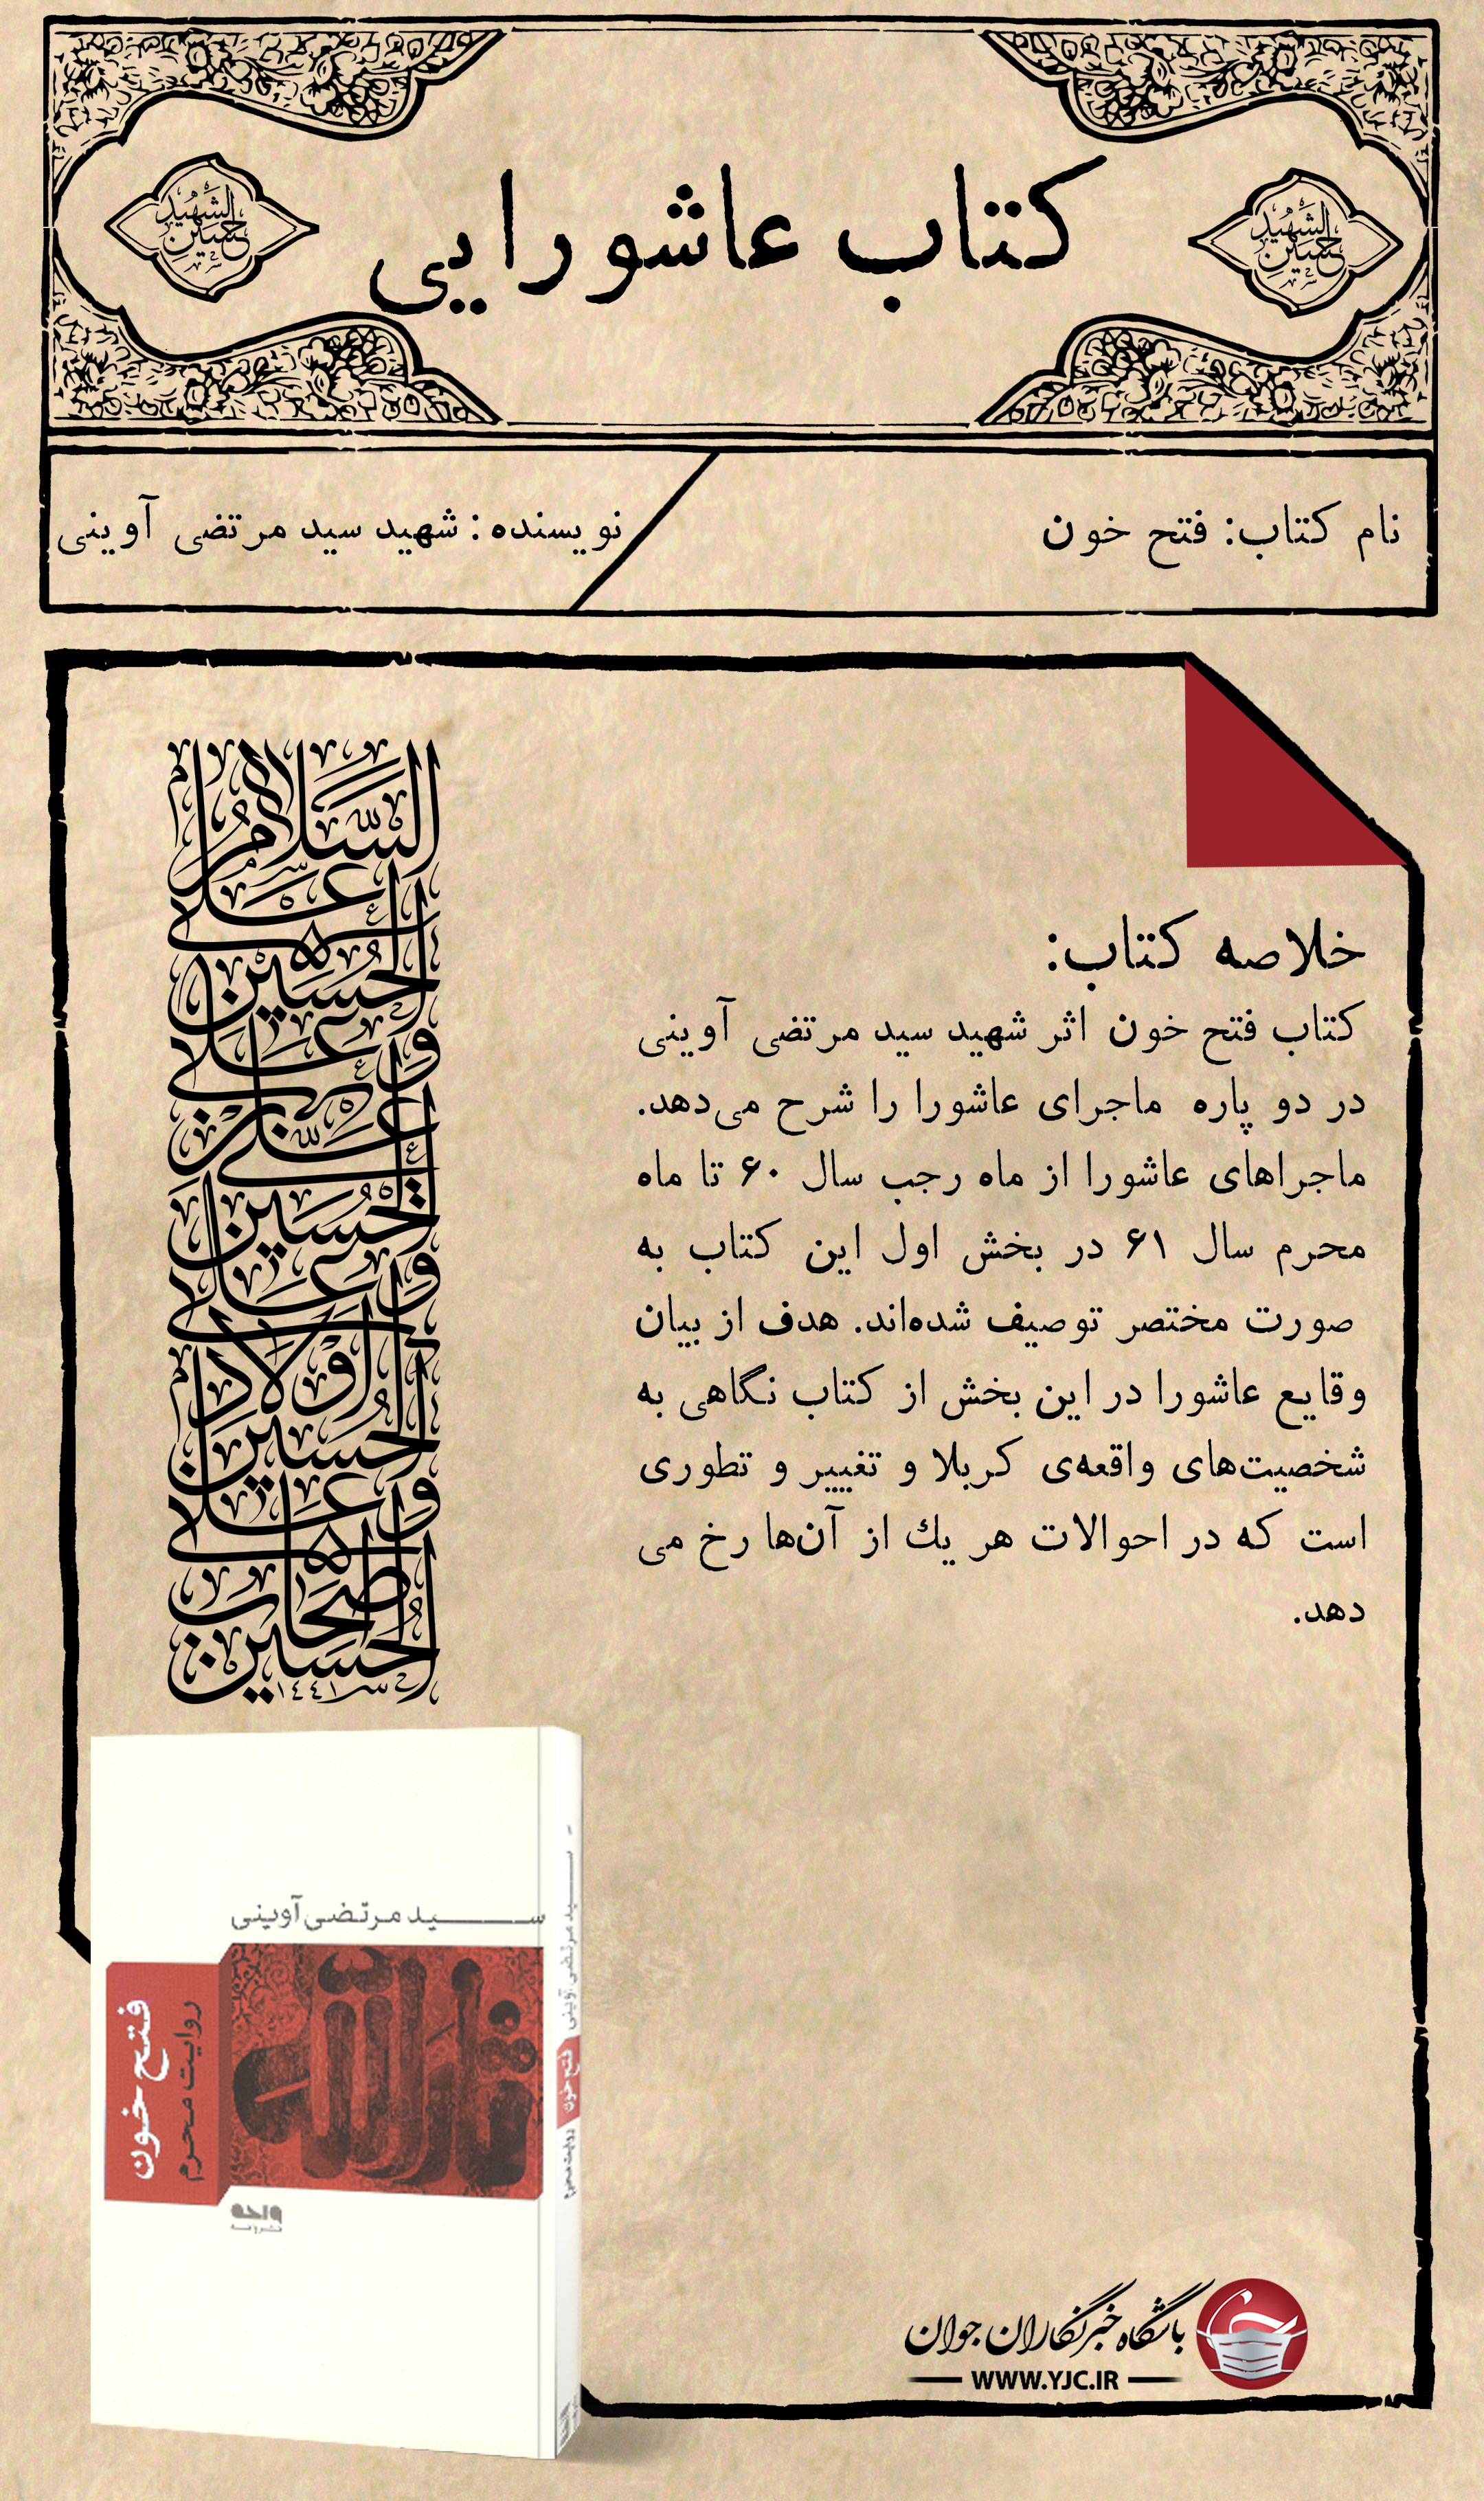 کتاب عاشورایی
الشهید
حسین
الشهید
حسین
نام کتاب: فتح خون
نویسنده: شهید سید مرتضی آوینی
خلاصه کتاب:
کتاب فتح خون اثر شهید سید مرتضی آوینی
در دو پاره ماجرای عاشورا را شرح می‌دهد.
ماجراهای عاشورا از ماه رجب سال ۶۰ تا ماه
محرم سال ۶۱ در بخش اول این کتاب به
صورت مختصر توصیف شده‌اند. هدف از بیان
وقایع عاشورا در این بخش از کتاب نگاهی به
شخصیت‌های واقعه‌ی کربلا و تغییر و تطوری
است که در احوالات هر یك از آن‌ها رخ می
دهد.
السلام
علی
الحسین
وعلی
علی بن
الحسین
وعلی
اولاد
الحسین
وعلی
اصحاب
الحسین
١٤٤١
سید مرتضی آوینی
فتح خون
روایت محرم
ثارالله
واحه
سید مرتضی آوینی
فتح خون
روایت محرم
باشگاه خبرنگاران جوان
WWW.YJC.IR